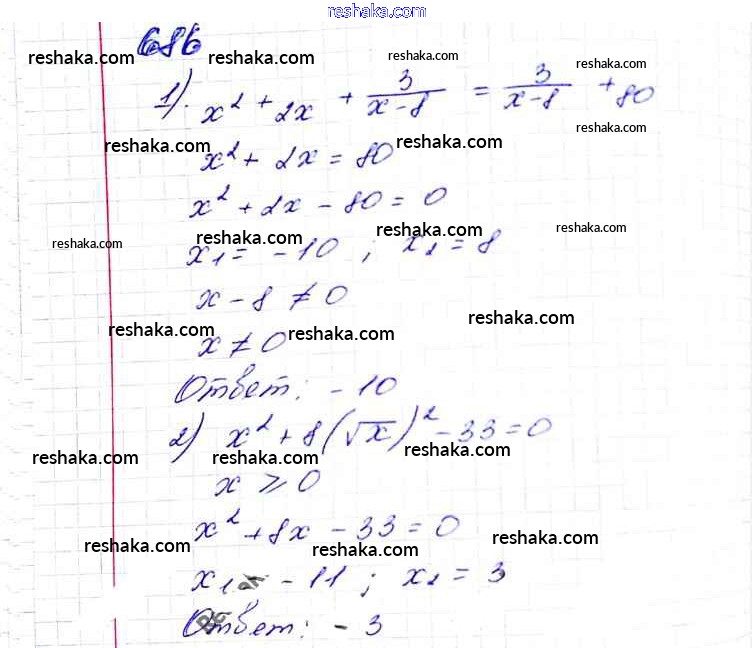 reshaka.com
686
reshaka.com reshaka.com reshaka.com reshaka.com
1). x² + 2x + 3/(x-8) = 3/(x-8) + 80
reshaka.com reshaka.com reshaka.com
x² + 2x = 80
x² + 2x - 80 = 0
reshaka.com reshaka.com reshaka.com reshaka.com
x₁ = -10 ; x₂ = 8
x - 8 ≠ 0
reshaka.com reshaka.com reshaka.com
x ≠ 0
Ответ: -10
2) x² + 8(√x)² - 33 = 0
reshaka.com reshaka.com reshaka.com
x ⩾ 0
x² + 8x - 33 = 0
reshaka.com reshaka.com reshaka.com
x₁ = -11 ; x₂ = 3
Ответ: - 3